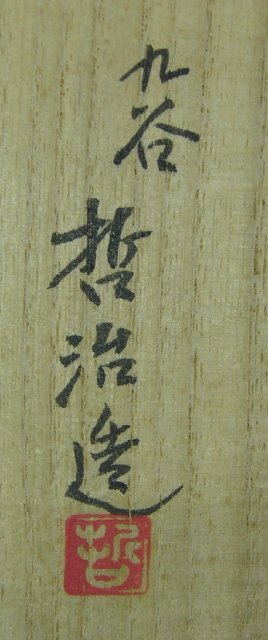 九谷
哲治造
哲